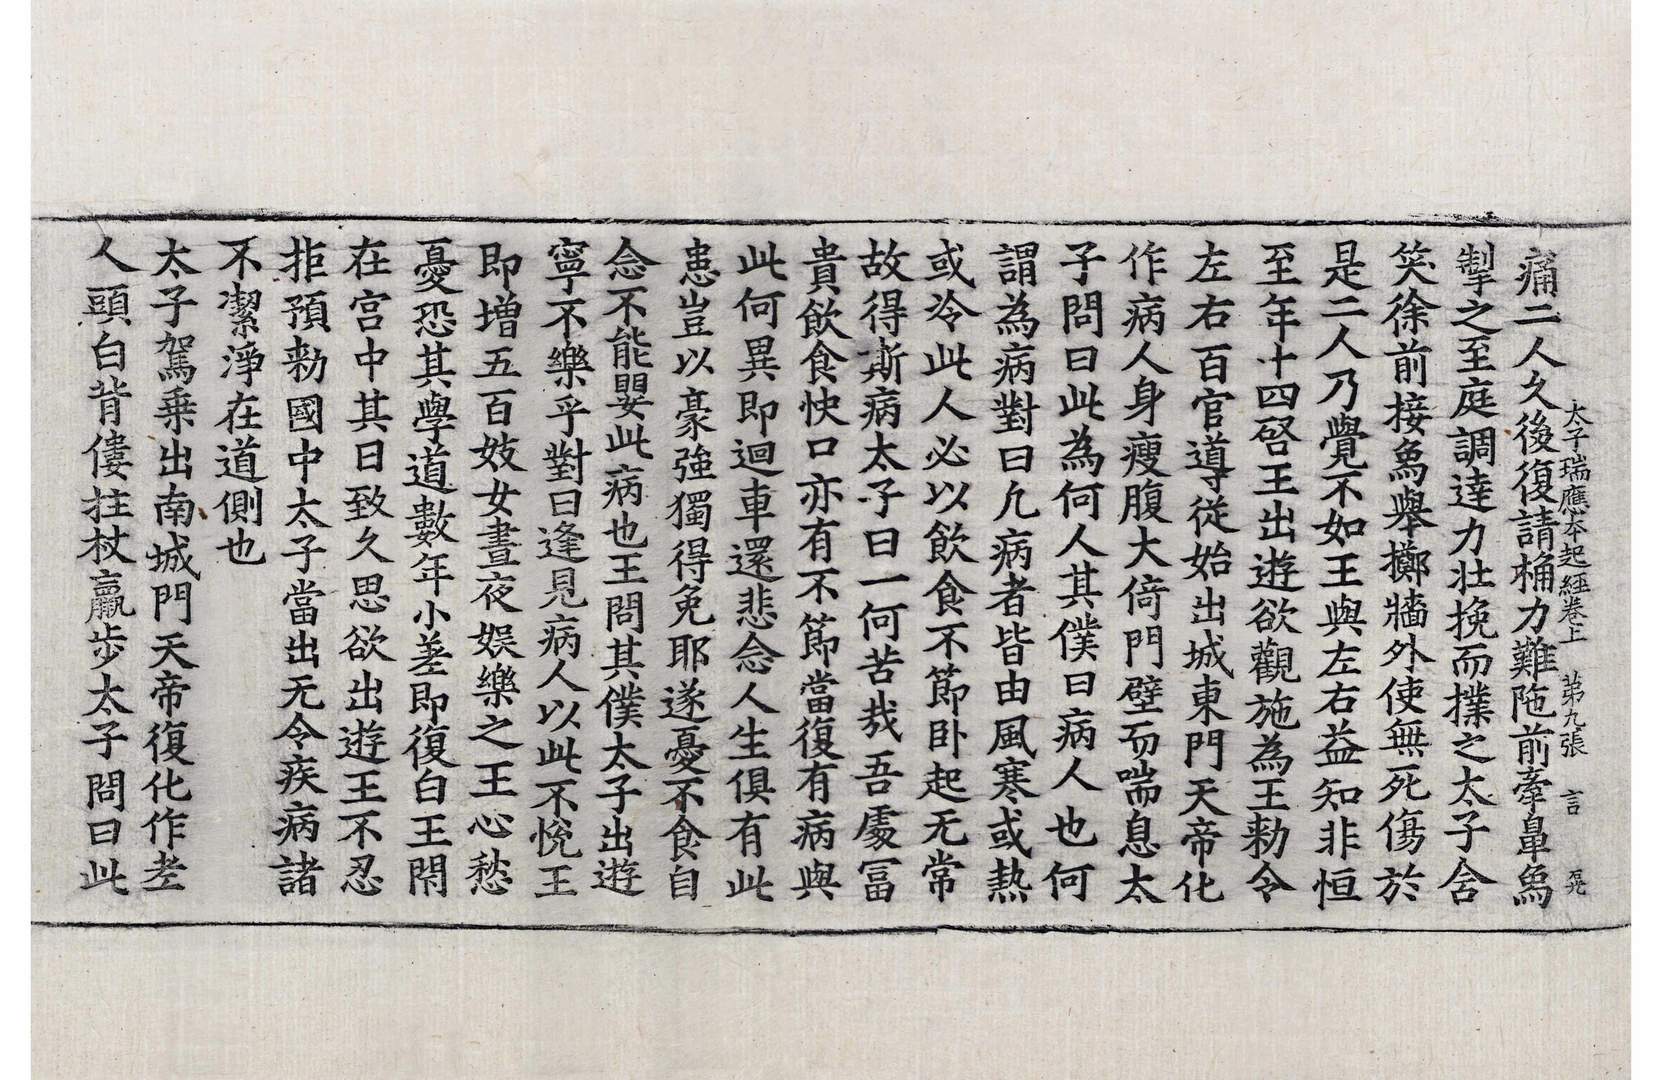 太子瑞應本起經卷上　第九張　言
痛二人久後復請桶力難陁前牽鼻爲
掣之至庭調達力壯挽而撲之太子含
笑徐前接爲舉擲牆外使無死傷於
是二人乃覺不如王與左右益知非恒
至年十四啓王出遊欲觀施為王勑令
左右百官導從始出城東門天帝化
作病人身瘦腹大倚門壁而喘息太
子問曰此為何人其僕曰病人也何
謂為病對曰凢病者皆由風寒或熱
或冷此人必以飲食不節卧起无常
故得斯病太子曰一何苦哉吾處冨
貴飲食快口亦有不節當復有病與
此何異即迴車還悲念人生俱有此
患豈以豪強獨得免耶遂憂不食自
念不能嬰此病也王問其僕太子出遊
寧不樂乎對曰逢見病人以此不悅王
即增五百妓女晝夜娛樂之王心愁
憂恐其學道數年小差即復白王閇
在宮中其日致久思欲出遊王不忍
拒預勑國中太子當出无令疾病諸
不潔淨在道側也
太子駕乗出南城門天帝復化作老
人頭白背僂拄杖羸步太子問曰此